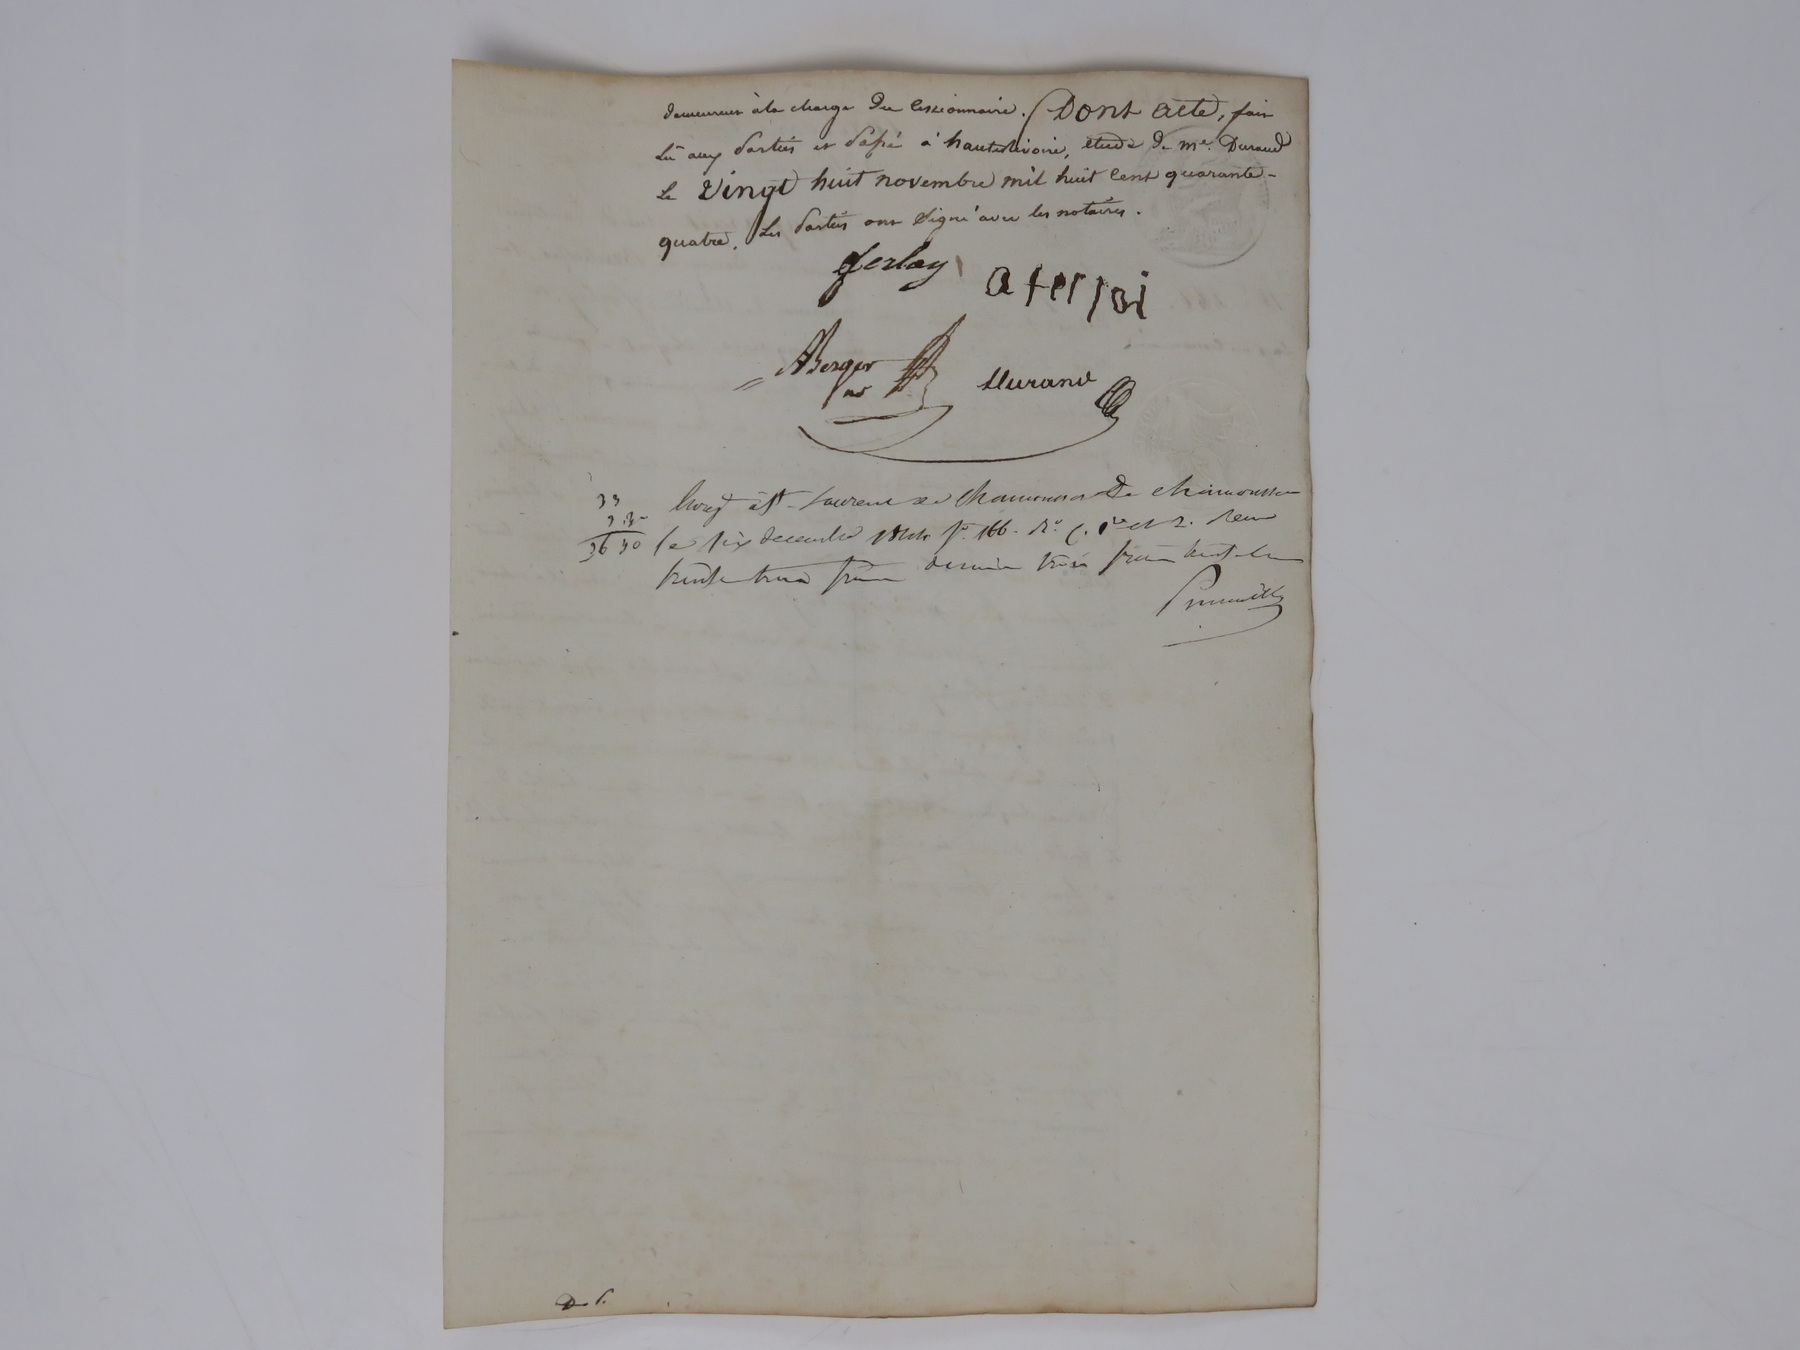 demeurent à la charge du cessionnaire. Dont acte, fait
lû aux parties et passé à hauterivoire, étude de me. Durand
le vingt huit novembre mil huit cent quarante-
quatre. Les parties ont signé avec les notaires.
ferlay
ABerger
Durand
33
3 30
36 30
à St Laurent de Chamousset
le six decembre 1844 fo. 166. Ro. C. 1re et 2. reçu
trente trois francs decime trois francs trente
D. 6.